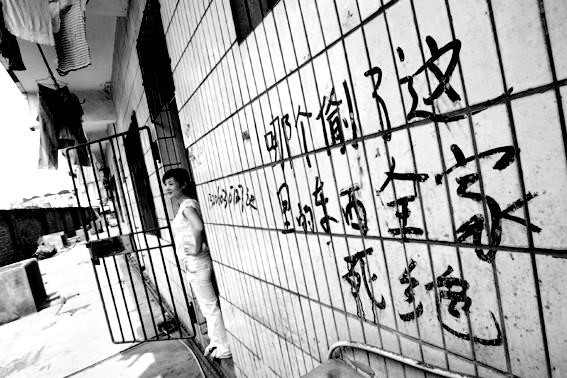 哪个偷了这
里的东西全家
死绝